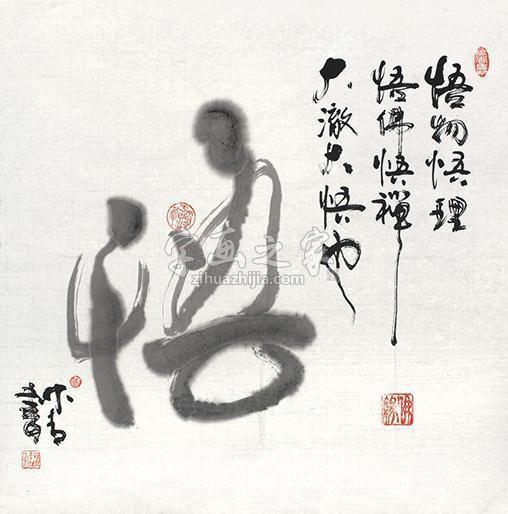 悟物悟理
悟佛悟禅
大澈大悟也
悟
字画之家
zihuazhijia.com